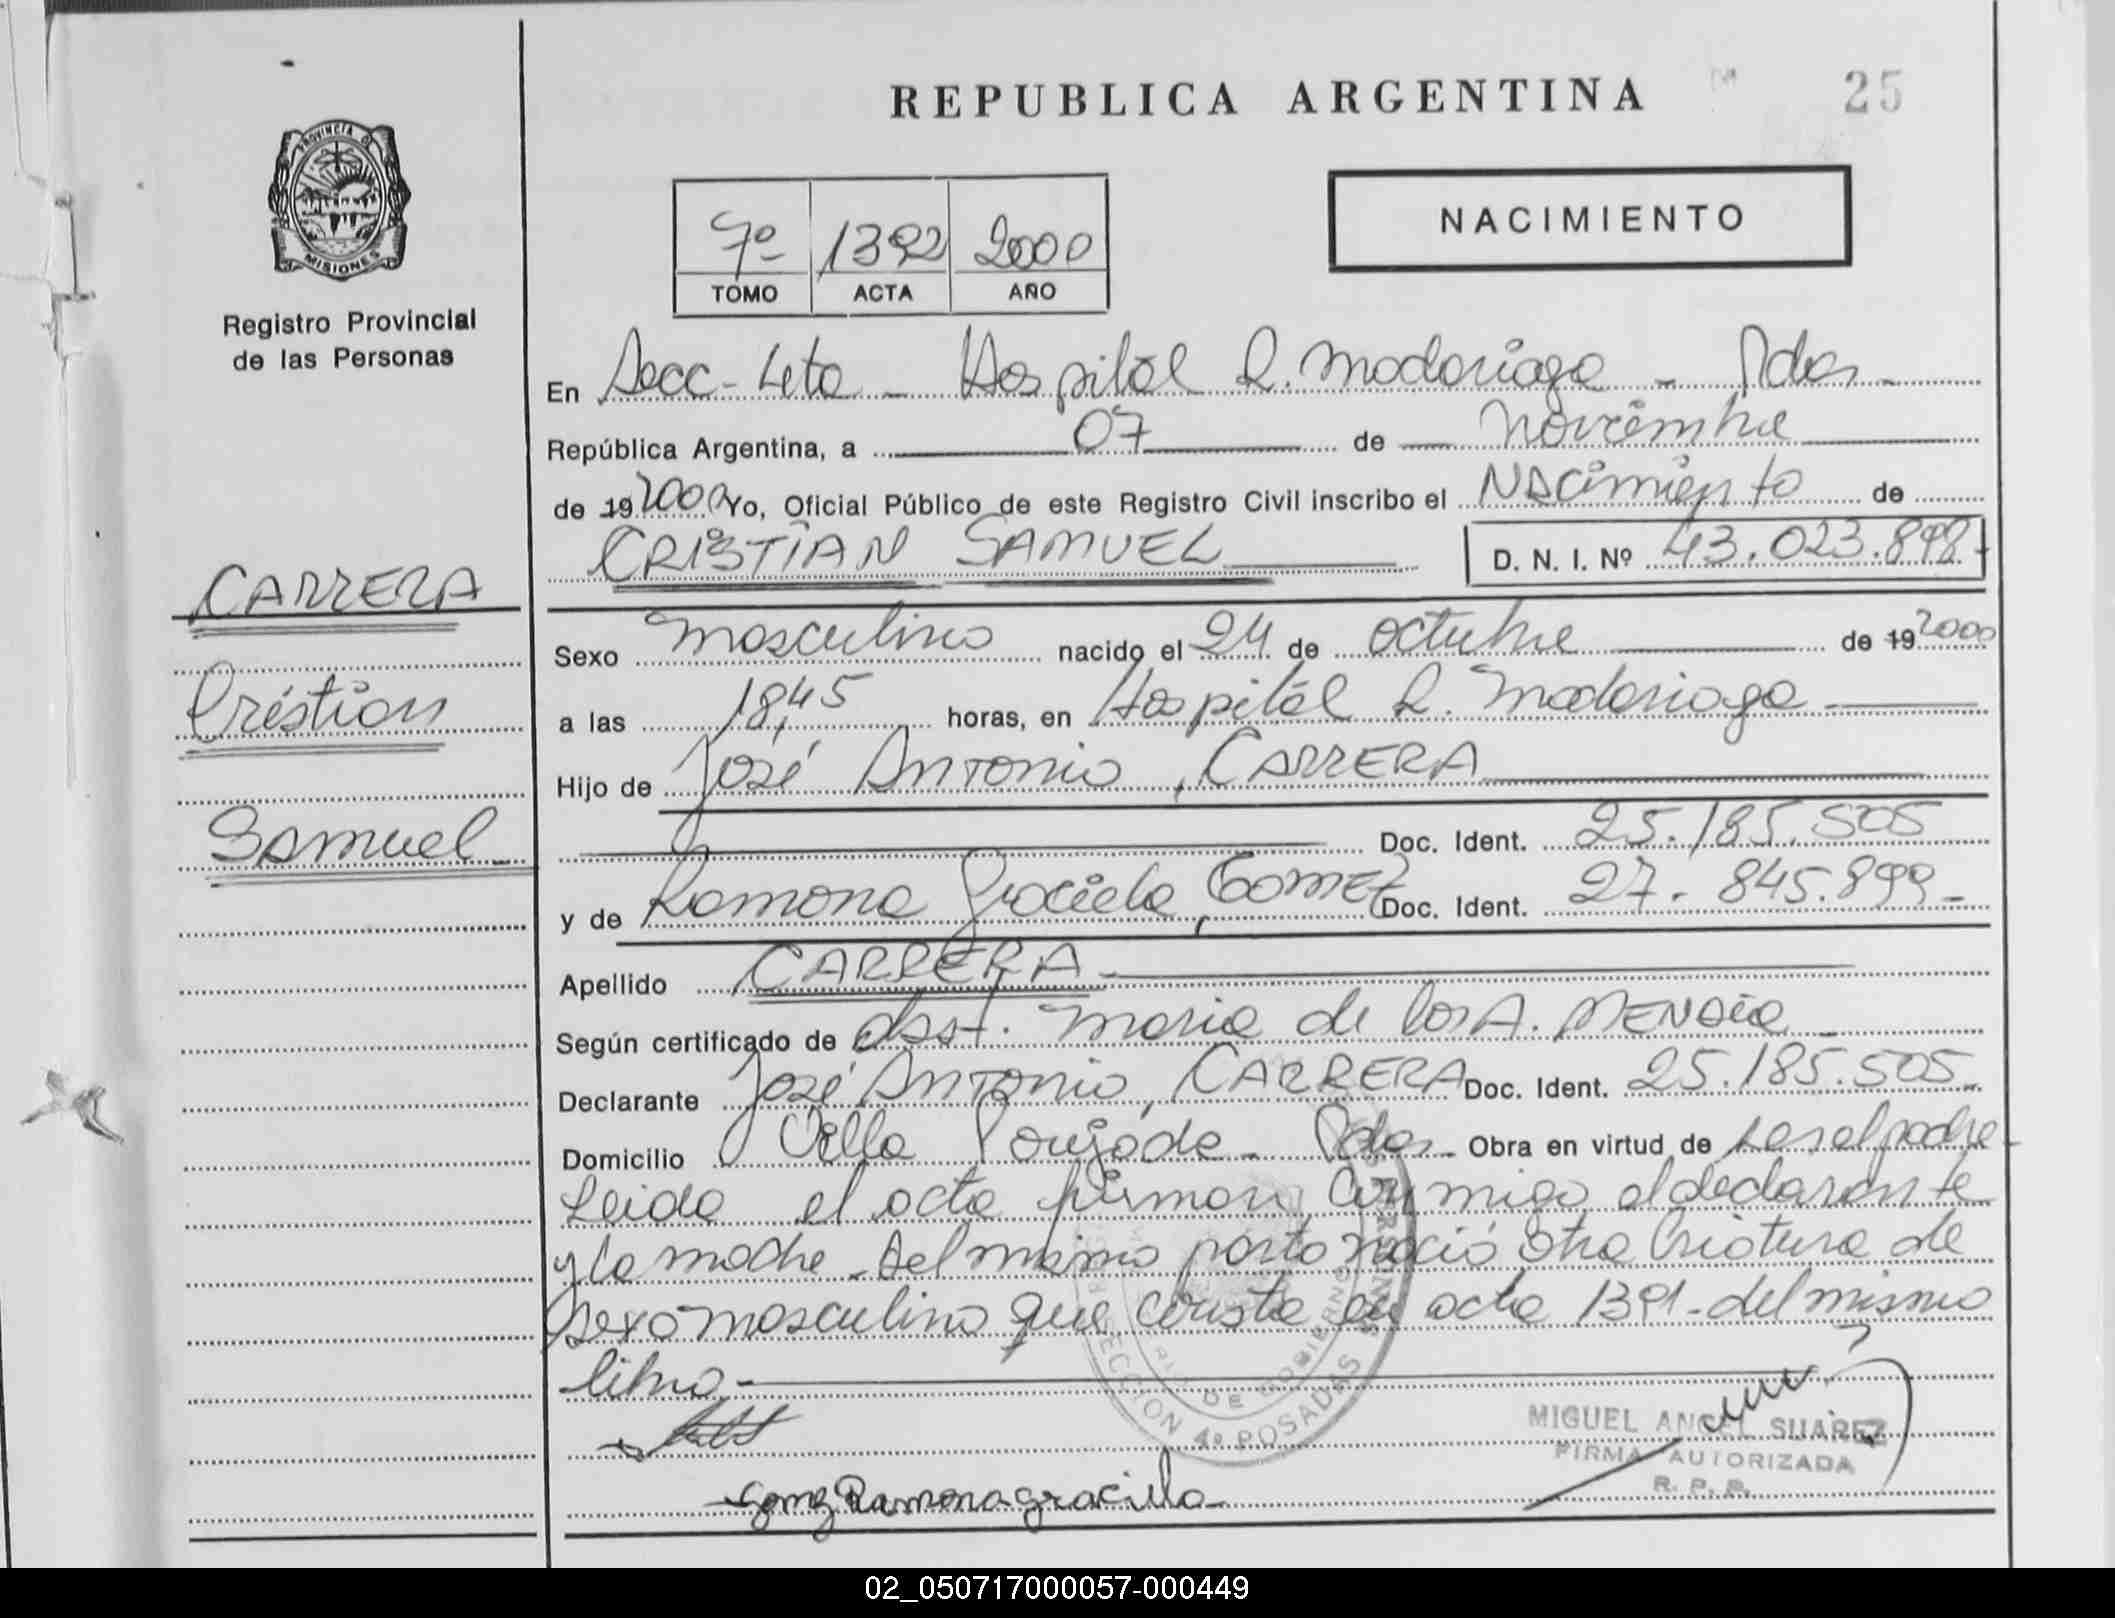 REPUBLICA ARGENTINA
25
PROVINCIA DE MISIONES
Registro Provincial
de las Personas
7º 1392 2000
TOMO ACTA AÑO
NACIMIENTO
En Secc- 4ta - Hospital R. Madariaga - Pdas-
República Argentina, a 07 de Noviembre
de 19 2000 Yo, Oficial Público de este Registro Civil inscribo el NAcimiento de
CRISTIAN SAMUEL
D. N. I. Nº 43.023.898-
CARRERA
Cristian
Samuel-
Sexo masculino nacido el 24 de octubre de 19 2000
a las 18,45 horas, en Hospital R. Madariaga
Hijo de José Antonio, CARRERA
Doc. Ident. 25.185.505
y de Ramona Graciela, Gomez Doc. Ident. 27.845.899-
Apellido CARRERA-
Según certificado de obst. Maria de los A. MENDEZ
Declarante José Antonio, CARRERA Doc. Ident. 25.185.505-
Domicilio Villa Poujade- Pdas- Obra en virtud de ser el padre-
Leida el acta firman conmigo el declarante
y la madre-del mismo parto nació otra criatura de
sexo masculino que consta en acta 1391-del mismo
libro-
SECCION 4ª POSADAS
DE GOBIERNO
MIGUEL ANGEL SUAREZ
FIRMA AUTORIZADA
R. P. P.
Gomez Ramona graciela
02_050717000057-000449